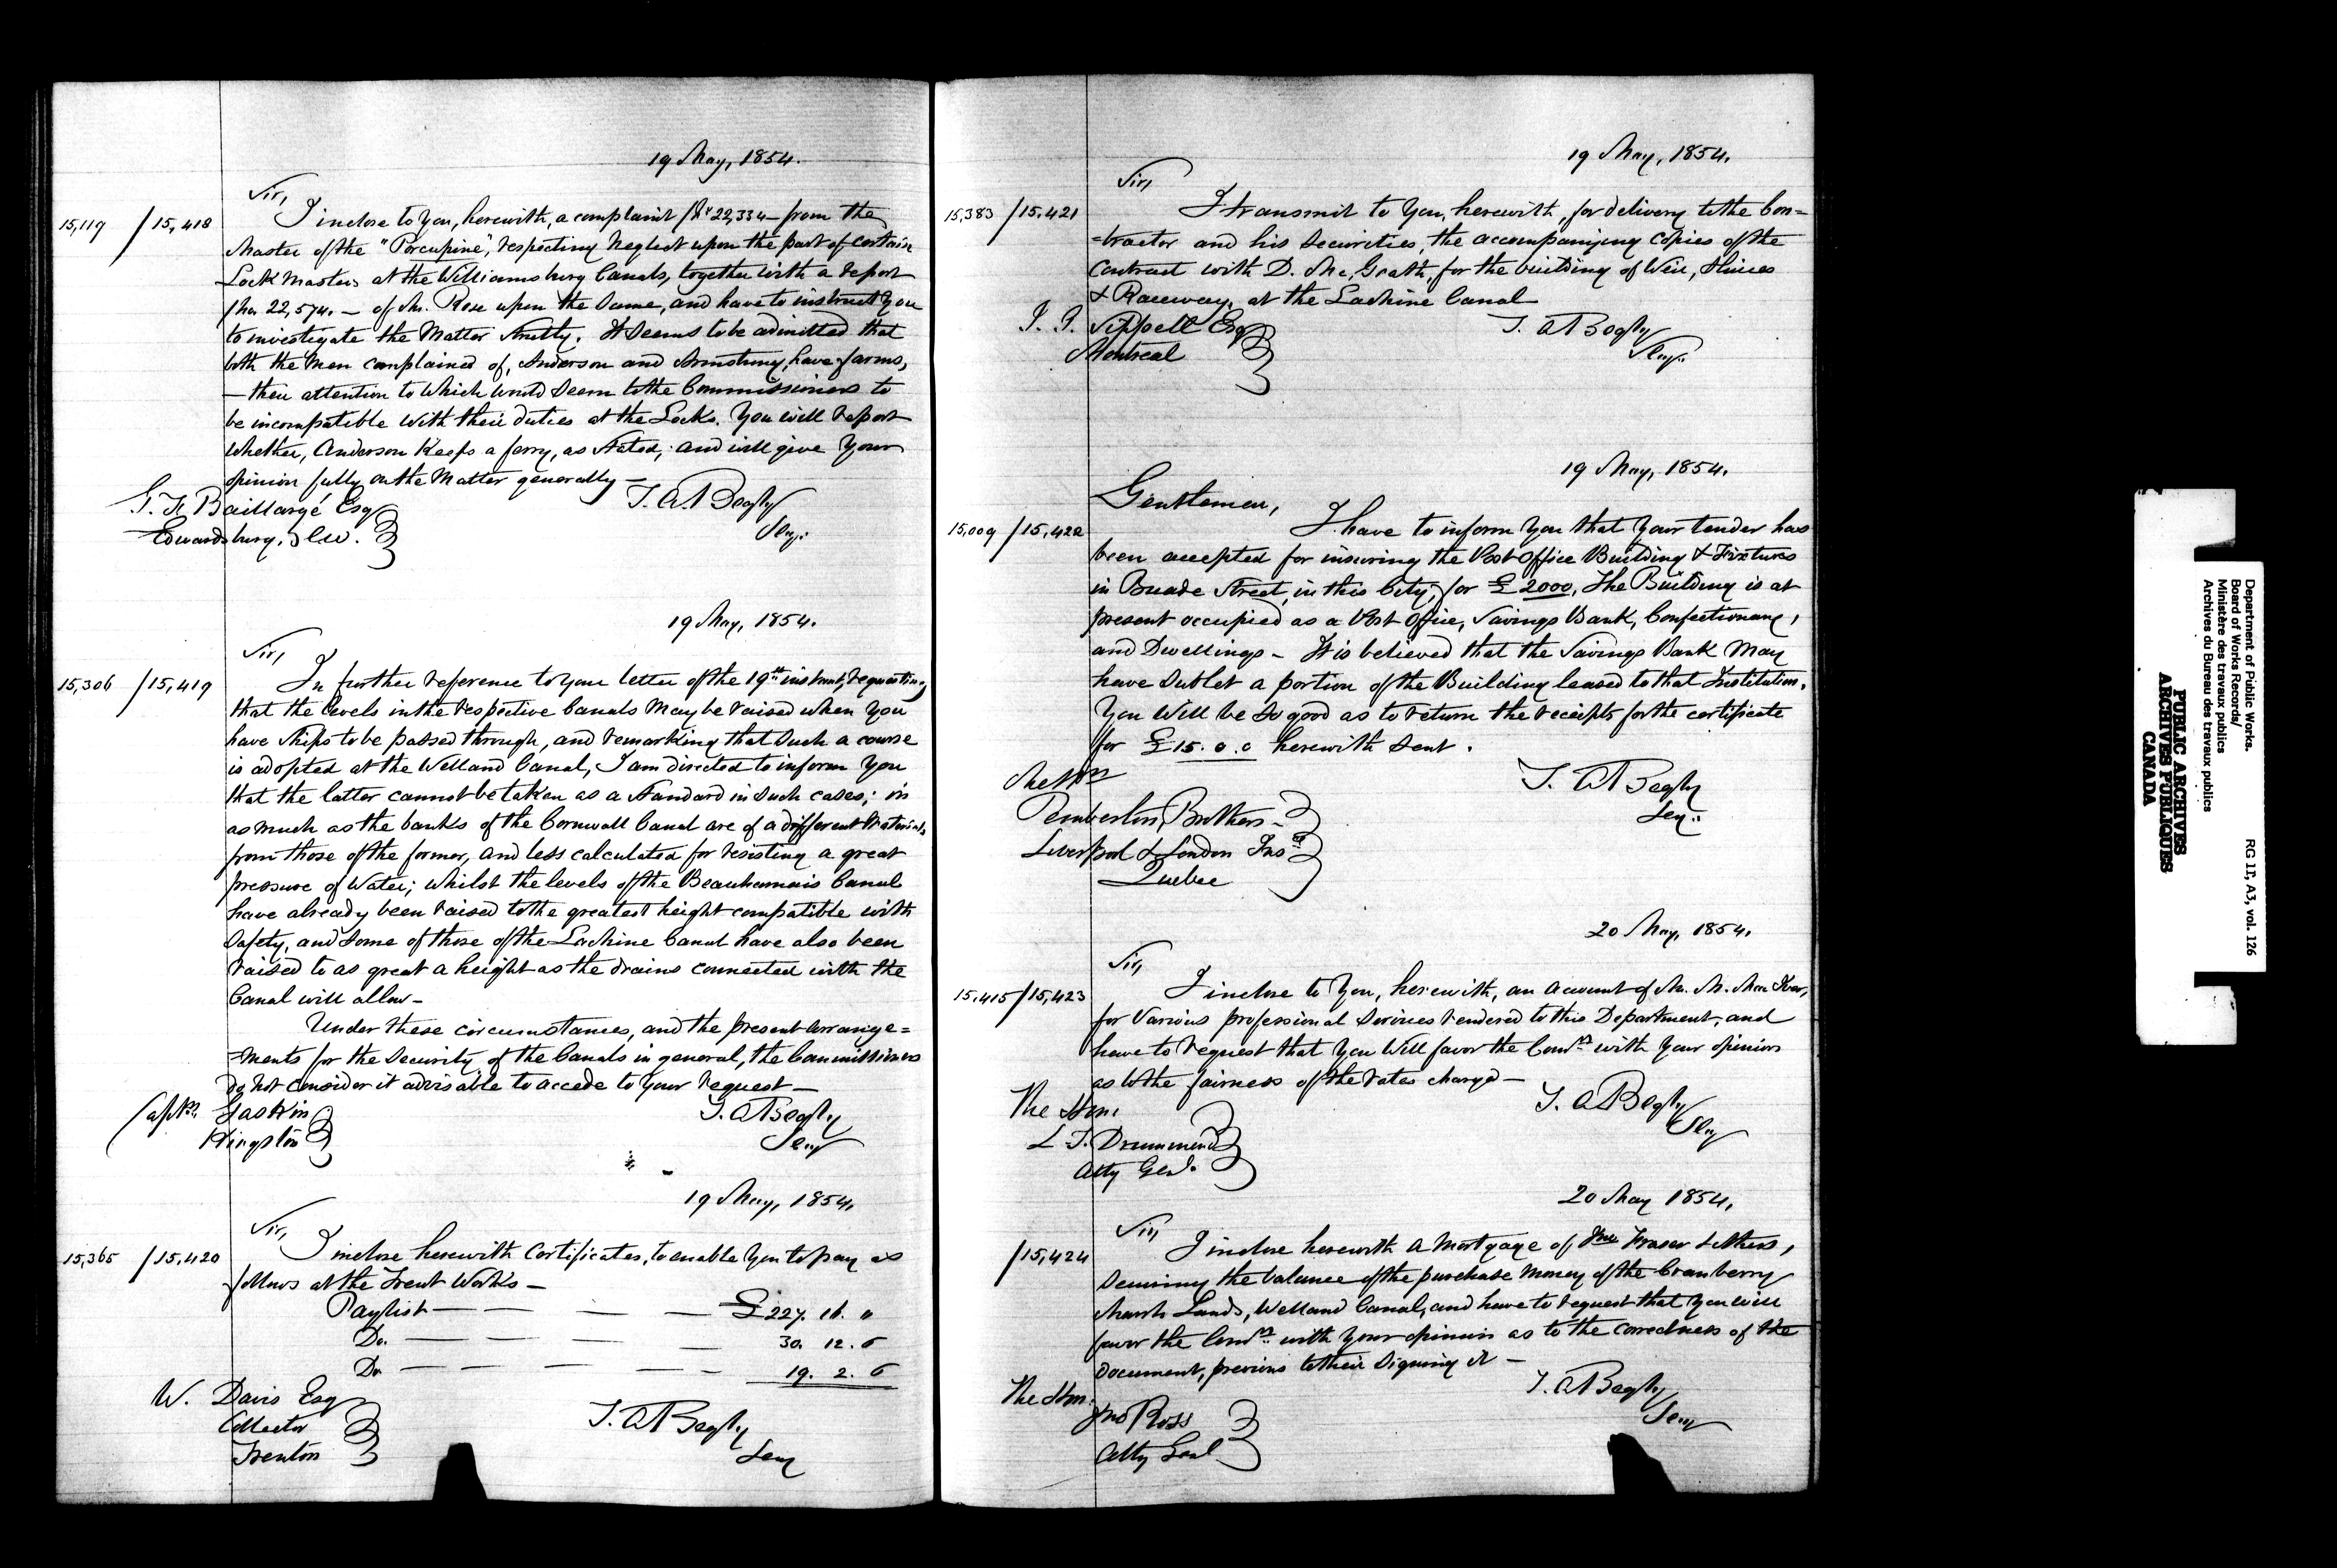 19 May, 1854.
Sir,
15,119 / 15,418
I inclose to you, herewith, a complaint / No 22,334 - from the
Master of the "Porcupine", respecting neglect upon the part of certain
Lock Masters at the Williamsburg Canals, together with a report
/ No. 22,574. - of Mr. Rose upon the same, and have to instruct you
to investigate the Matter strictly. It seems to be admitted that
both the Men complained of, Anderson and Armstrong, have farms,
- their attention to which would seem to the Commissioners to
be incompatible with their duties at the Locks. You will report
whether, Anderson keeps a ferry, as stated; and will give your
opinion fully on the Matter generally -
T. A. Begly
Secy.
Baillargé Esq
Edwardsburg, C.W.
19 May, 1854.
Sir,
15,306 / 15,419
In further reference to your letter of the 19th instant, requesting
that the levels in the respective Canals may be raised when you
have ships to be passed through, and remarking that such a course
is adopted at the Welland Canal, I am directed to inform you
that the latter cannot be taken as a standard in such cases; in
as much as the banks of the Cornwall Canal are of a different material
from those of the former, and less calculated for resisting a great
pressure of Water; whilst the levels of the Beauharnais Canal
have already been raised to the greatest height compatible with
safety, and some of those of the Lachine Canal have also been
raised to as great a height as the drains connected with the
Canal will allow -
Under these circumstances, and the present arrange=
=ments for the security of the Canals in general, the Commissioners
do not consider it advisable to accede to your request -
T. A. Begly
Secy
Captn. Gaskin
Kingston
19 May, 1854.
Sir,
15,365 / 15,420
I inclose herewith Certificates, to enable you to pay as
follows at the Trent Works -
Paylist - £ 227. 16. "
Do. - 30. 12. 6
Do. - 19. 2. 6
W. Davis Esq
Collector
Trenton
T. A. Begly
Secy
19 May, 1854.
Sir,
15,383 / 15,421
I transmit to you, herewith, for delivery to the Con=
=tractor and his securities, the accompanying copies of the
Contract with D. McGrath, for the building of Weir, Sluices
& Raceway, at the Lachine Canal
Sippell Esq
Montreal
T. A. Begly
Secy.
19 May, 1854.
Gentlemen,
15,009 / 15,422
I have to inform you that your tender has
been accepted for insuring the Post Office Building & Fixtures
in Buade Street, in this City, for £2000. The Building is at
present occupied as a Post Office, Savings Bank, Confectionary,
and Dwellings - It is believed that the Savings Bank may
have sublet a portion of the Building leased to that Institution.
You will be so good as to return the receipts for the certificate
for £15.0.0 herewith sent.
Messrs
Pemberton, Brothers -
Liverpool & London Insce
Quebec
T. A. Begly
Secy.
20 May, 1854.
Sir,
15,415 / 15,423
I inclose to you, herewith, an account of Mr.
for various professional services rendered to this Department, and
have to request that you will favor the Comrs. with your opinion
as to the fairness of the rates charged -
The Hon.
L. T. Drummond
Atty Genl.
T. A. Begly
Secy
20 May 1854.
Sir,
/ 15,424
I inclose herewith a Mortgage of Jno Fraser & others,
securing the balance of the purchase Money of the Cranberry
Marsh Lands, Welland Canal, and have to request that you will
favor the Comrs. with your opinion as to the correctness of the
document, previous to their signing it -
The Hon.
Jno Ross
Atty Genl
T. A. Begly
Secy
Department of Public Works.
Board of Works Records/
Ministère des travaux publics
Archives du Bureau des travaux publics
RG 11, A3, vol. 126
PUBLIC ARCHIVES
ARCHIVES PUBLIQUES
CANADA